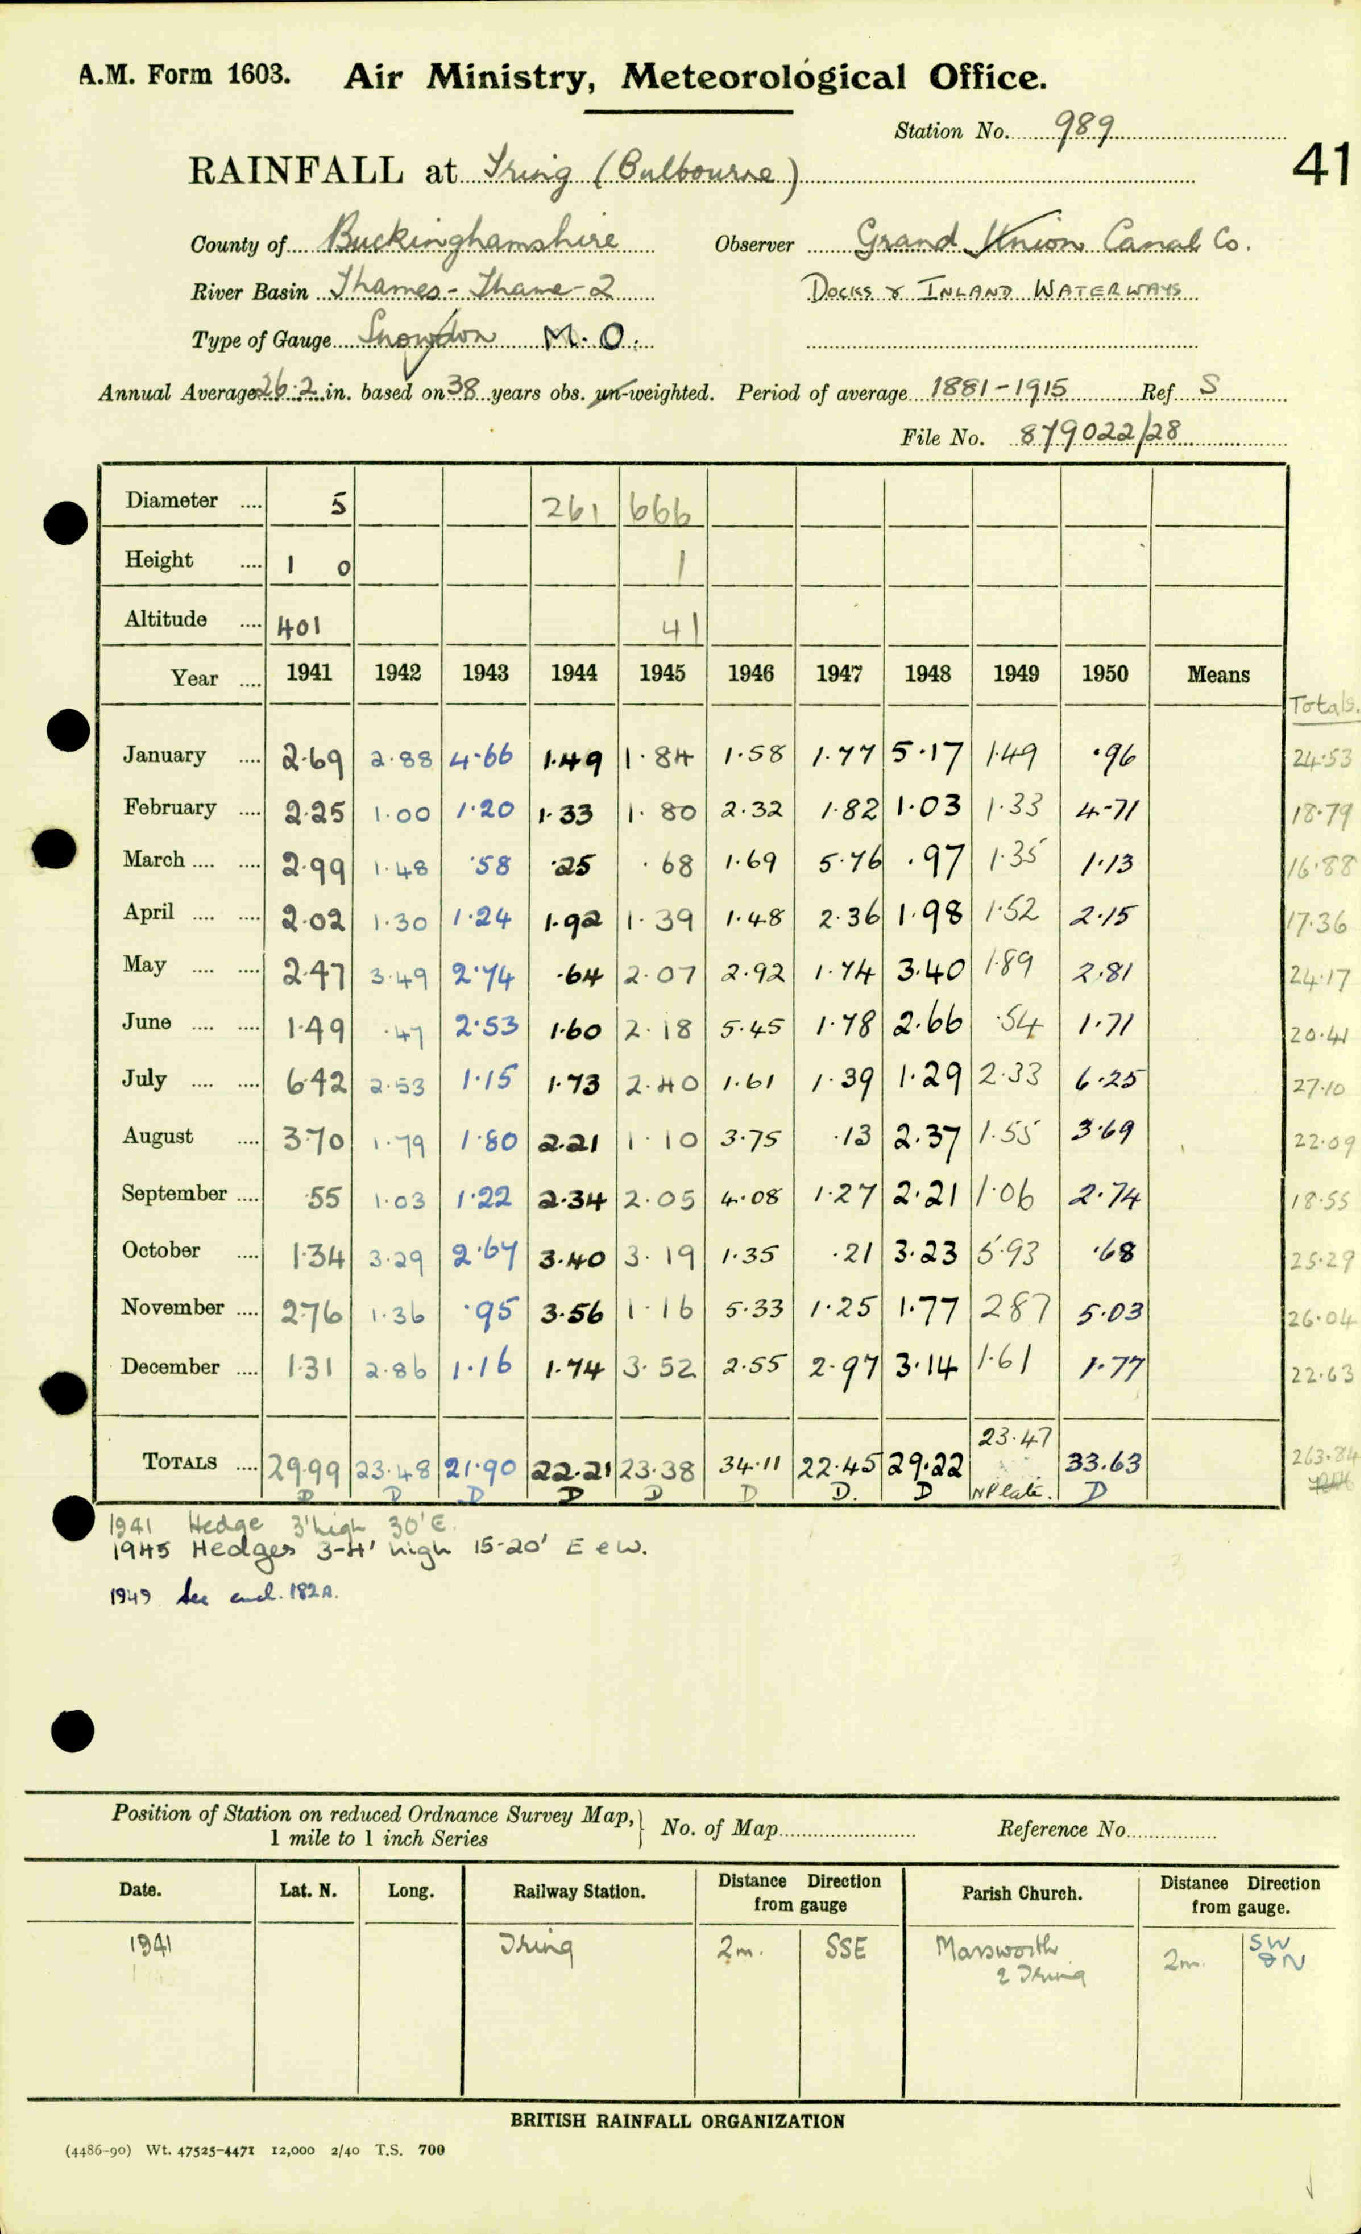 A.M. Form 1603. Air Ministry, Meteorological Office.
Station No. 989
41
RAINFALL at Tring (Bulbourne)
County of Buckinghamshire Observer Grand Union Canal Co.
River Basin Thames - Thame - 2 DOCKS & INLAND WATERWAYS
Type of Gauge Snowdon M.O.
Annual Average 26.2 in. based on 38 years obs. un-weighted. Period of average 1881-1915 Ref S
File No. 879022/28
Diameter .... 5 261 666
Height .... 1 0 1
Altitude .... 401 41
Year .... 1941 1942 1943 1944 1945 1946 1947 1948 1949 1950 Means
Totals.
January .... 2.69 2.88 4.66 1.49 1.84 1.58 1.77 5.17 1.49 .96 24.53
February .... 2.25 1.00 1.20 1.33 1.80 2.32 1.82 1.03 1.33 4.71 18.79
March .... .... 2.99 1.48 .58 .25 .68 1.69 5.76 .97 1.35 1.13 16.88
April .... .... 2.02 1.30 1.24 1.92 1.39 1.48 2.36 1.98 1.52 2.15 17.36
May .... .... 2.47 3.49 2.74 .64 2.07 2.92 1.74 3.40 1.89 2.81 24.17
June .... .... 1.49 .47 2.53 1.60 2.18 5.45 1.78 2.66 .54 1.71 20.41
July .... .... 6.42 2.53 1.15 1.73 2.40 1.61 1.39 1.29 2.33 6.25 27.10
August .... 3.70 1.79 1.80 2.21 1.10 3.75 .13 2.37 1.55 3.69 22.09
September .... .55 1.03 1.22 2.34 2.05 4.08 1.27 2.21 1.06 2.74 18.55
October .... 1.34 3.29 2.67 3.40 3.19 1.35 .21 3.23 5.93 .68 25.29
November .... 2.76 1.36 .95 3.56 1.16 5.33 1.25 1.77 2.87 5.03 26.04
December .... 1.31 2.86 1.16 1.74 3.52 2.55 2.97 3.14 1.61 1.77 22.63
TOTALS .... 29.99 23.48 21.90 22.21 23.38 34.11 22.45 29.22 23.47 33.63 263.84
D D D D D D D. D NP late. D
1941 Hedge 3' high 30' E.
1945 Hedges 3-4' high 15-20' E & W.
1949 See encl. 182A.
Position of Station on reduced Ordnance Survey Map, } No. of Map Reference No.
1 mile to 1 inch Series
Date. Lat. N. Long. Railway Station. Distance Direction from gauge Parish Church. Distance Direction from gauge.
1941 Tring 2m. SSE Marsworth & Tring 2m. SW & N
BRITISH RAINFALL ORGANIZATION
(4486-90) Wt. 47525-4471 12,000 2/40 T.S. 700